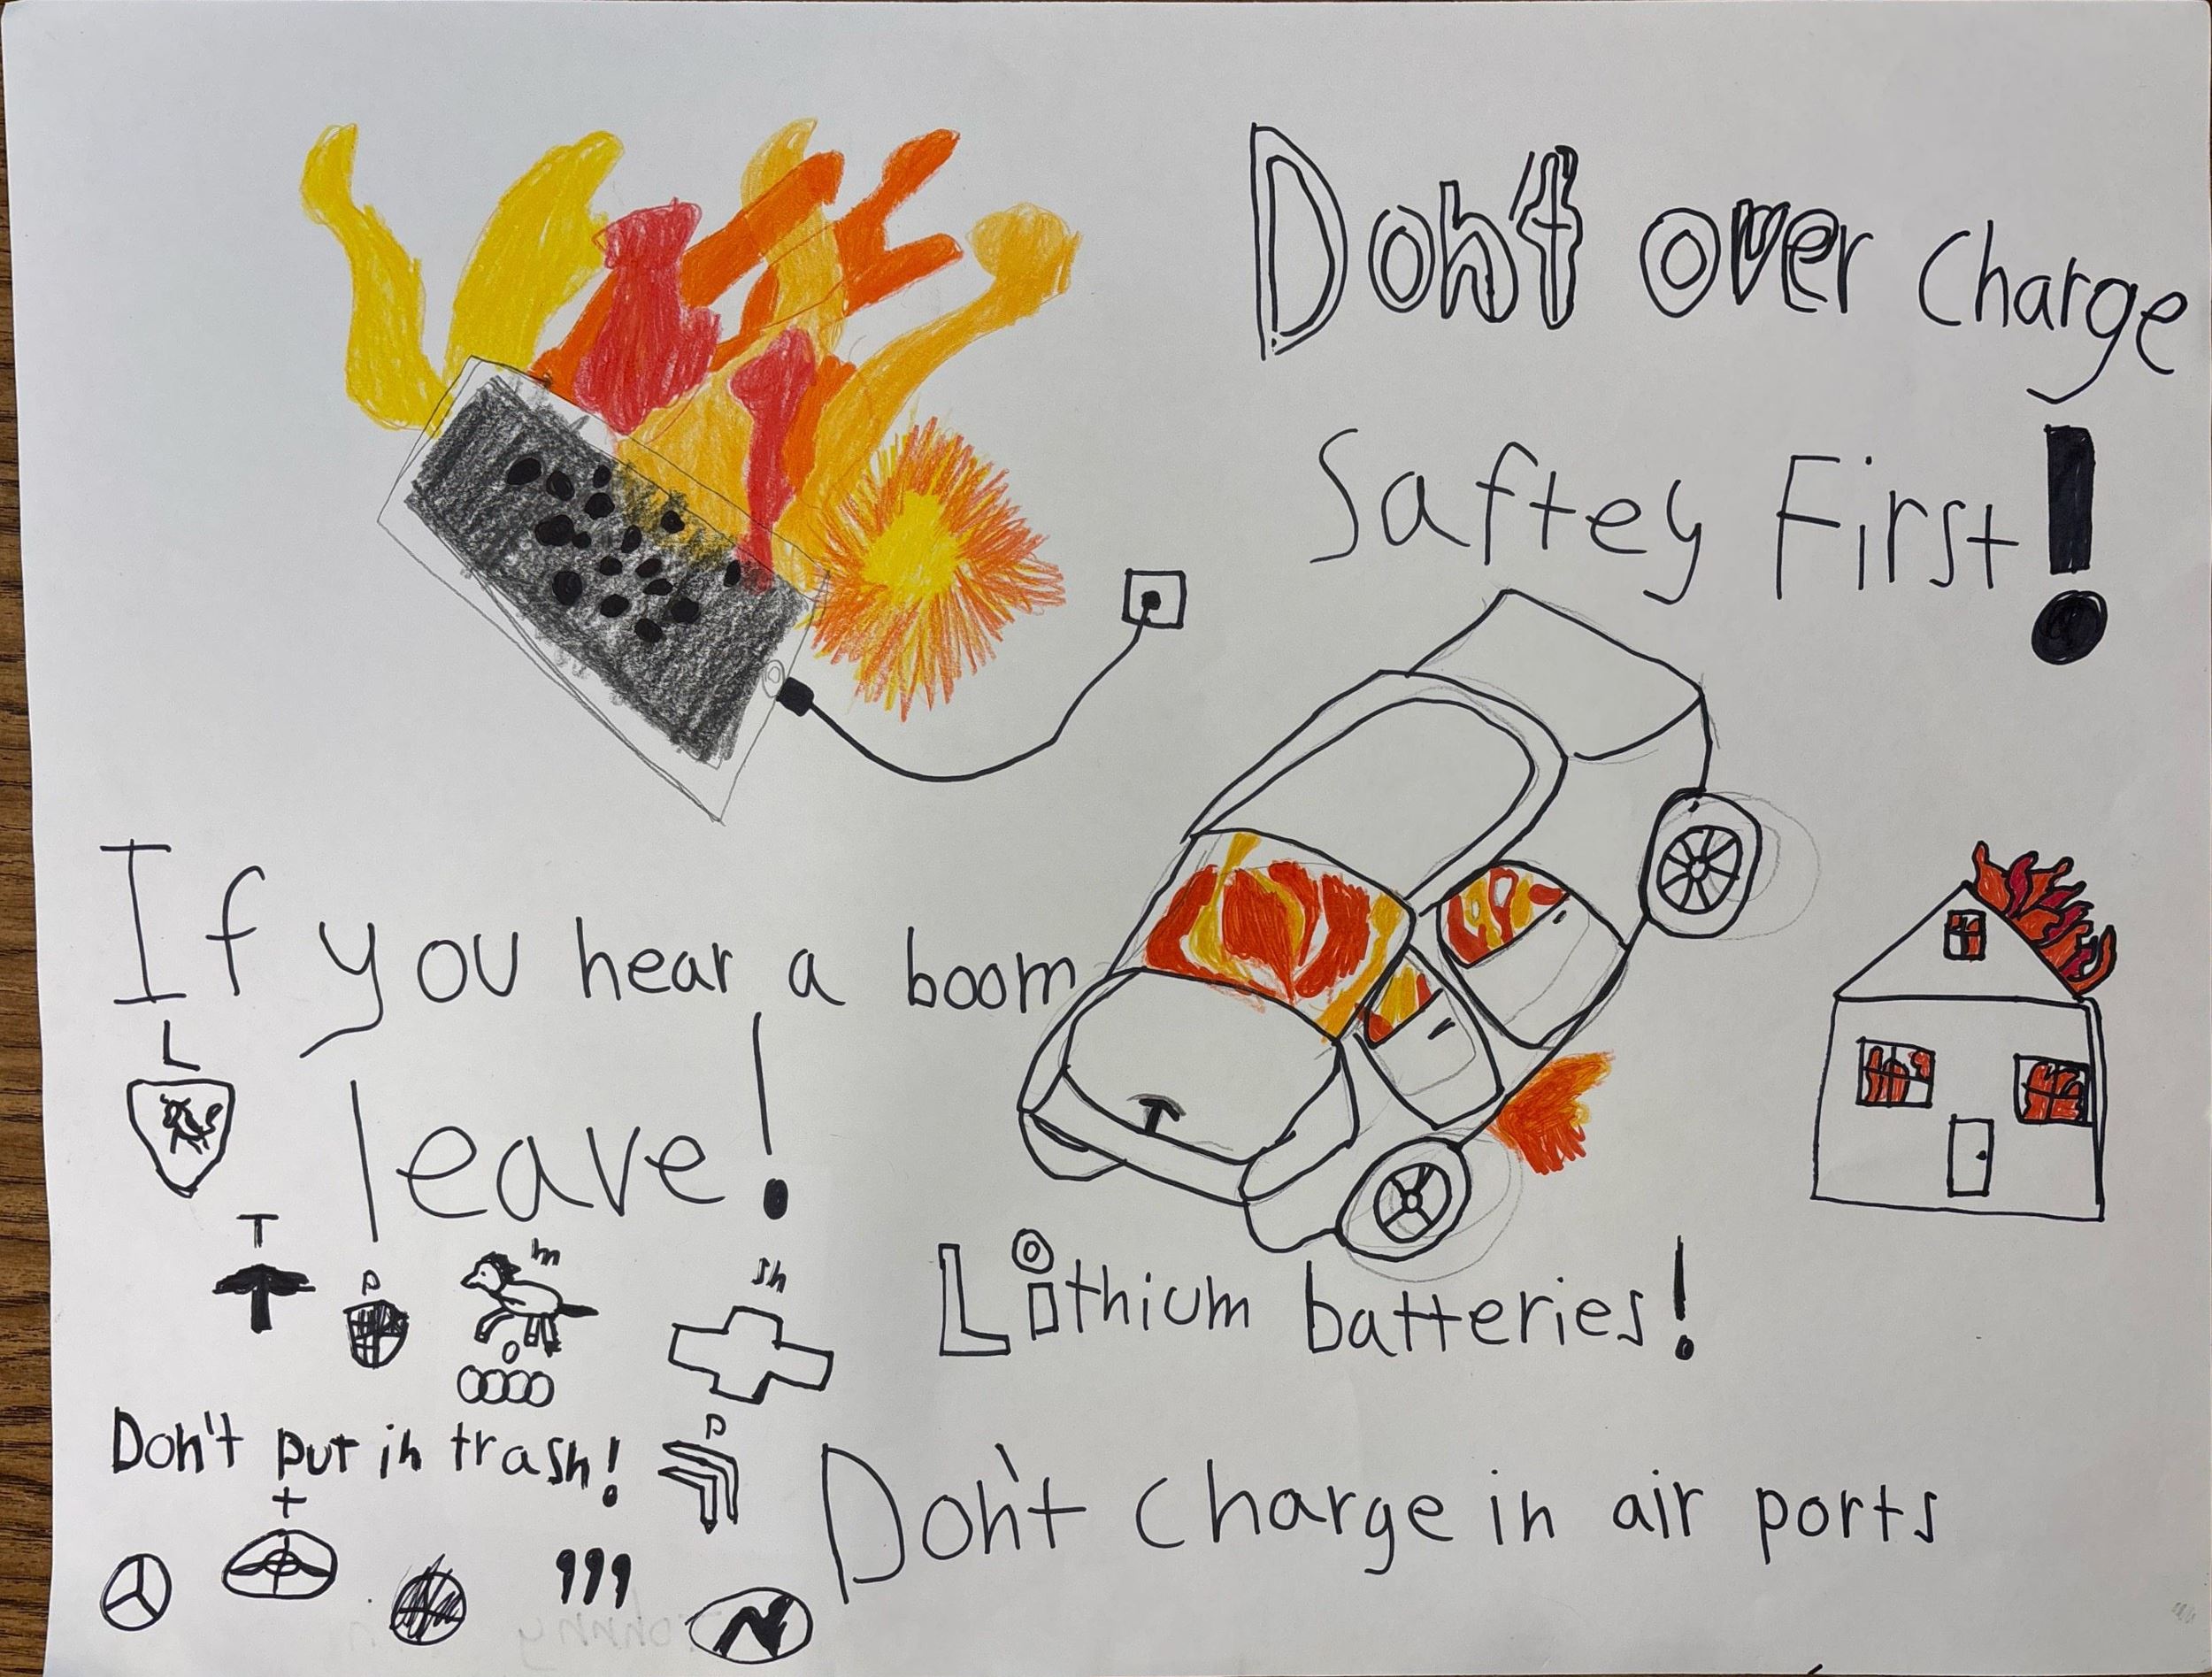 Don't over charge
Saftey First!
If you hear a boom
leave!
L
T
P
m
sh
Lithium batteries!
Don't put in trash!
P
Don't charge in air ports